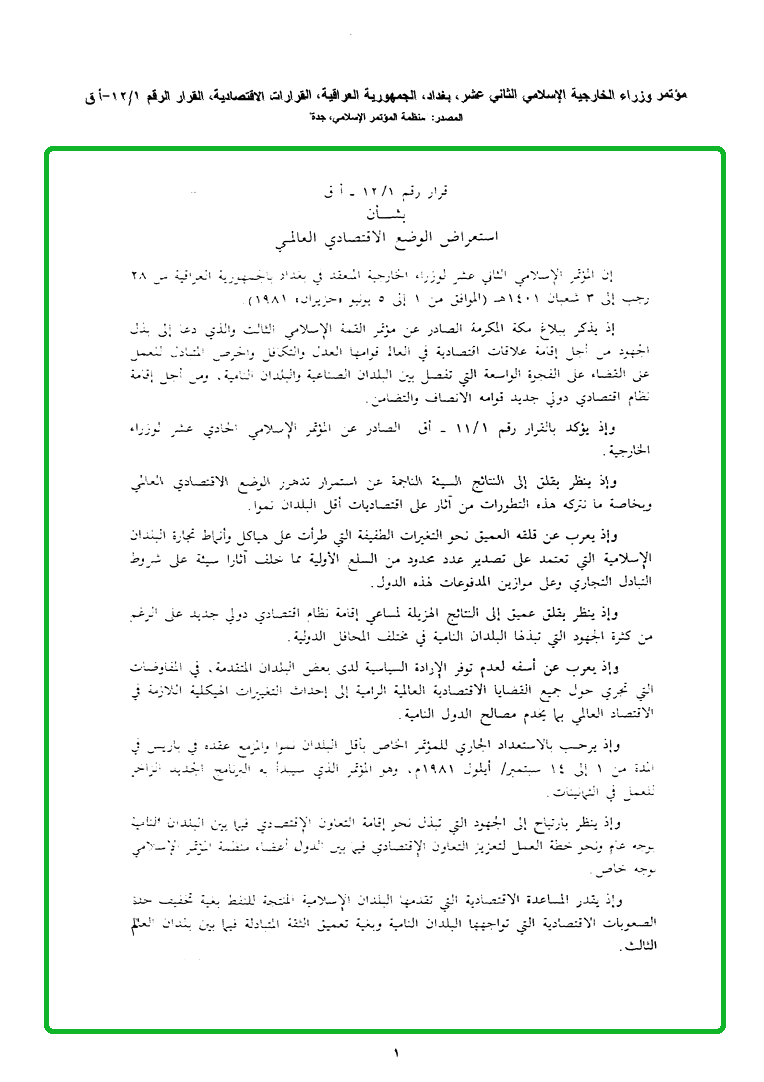 مؤتمر وزراء الخارجية الإسلامي الثاني عشر، بغداد، الجمهورية العراقية، القرارات الاقتصادية، القرار الرقم ١٢/١-أ ق
المصدر: منظمة المؤتمر الإسلامي، جدة
قرار رقم ١٢/١ ـ أ ق
بشـــأن
استعراض الوضع الاقتصادي العالمي
إن المؤتمر الإسلامي الثاني عشر لوزراء الخارجية المنعقد في بغداد بالجمهورية العراقية من ٢٨
رجب إلى ٣ شعبان ١٤٠١هـ (الموافق من ١ إلى ٥ يونيو «حزيران» ١٩٨١).
إذ يذكر ببلاغ مكة المكرمة الصادر عن مؤتمر القمة الإسلامي الثالث والذي دعا إلى بذل
الجهود من أجل إقامة علاقات اقتصادية في العالم قوامها العدل والتكافل والحرص المتبادل للعمل
على القضاء على الفجوة الواسعة التي تفصل بين البلدان الصناعية والبلدان النامية، ومن أجل إقامة
نظام اقتصادي دولي جديد قوامه الانصاف والتضامن.
وإذ يؤكد بالقرار رقم ١١/١ ـ أق الصادر عن المؤتمر الإسلامي الحادي عشر لوزراء
الخارجية.
وإذ ينظر بقلق إلى النتائج السيئة الناجمة عن استمرار تدهور الوضع الاقتصادي العالمي
وبخاصة ما تتركه هذه التطورات من آثار على اقتصاديات أقل البلدان نموا.
وإذ يعرب عن قلقه العميق نحو التغيرات الطفيفة التي طرأت على هياكل وأنماط تجارة البلدان
الإسلامية التي تعتمد على تصدير عدد محدود من السلع الأولية مما خلف آثارا سيئة على شروط
التبادل التجاري وعلى موازين المدفوعات لهذه الدول.
وإذ ينظر بقلق عميق إلى النتائج الهزيلة لمساعي إقامة نظام اقتصادي دولي جديد على الرغم
من كثرة الجهود التي تبذلها البلدان النامية في مختلف المحافل الدولية.
وإذ يعرب عن أسفه لعدم توفر الإرادة السياسية لدى بعض البلدان المتقدمة، في المفاوضات
التي تجري حول جميع القضايا الاقتصادية العالمية الرامية إلى إحداث التغييرات الهيكلية اللازمة في
الاقتصاد العالمي بما يخدم مصالح الدول النامية.
وإذ يرحب بالاستعداد الجاري للمؤتمر الخاص بأقل البلدان نموا والمزمع عقده في باريس في
المدة من ١ إلى ١٤ سبتمبر/ أيلول ١٩٨١م، وهو المؤتمر الذي سيبدأ به البرنامج الجديد الزاخر
للعمل في الثمانينات.
وإذ ينظر بارتياح إلى الجهود التي تبذل نحو إقامة التعاون الإقتصادي فيما بين البلدان النامية
بوجه عام ونحو خطة العمل لتعزيز التعاون الإقتصادي فيما بين الدول أعضاء منظمة المؤتمر الإسلامي
بوجه خاص.
وإذ يقدر المساعدة الاقتصادية التي تقدمها البلدان الإسلامية المنتجة للنفط بغية تخفيف حدة
الصعوبات الاقتصادية التي تواجهها البلدان النامية وبغية تعميق الثقة المتبادلة فيما بين بلدان العالم
الثالث.
١